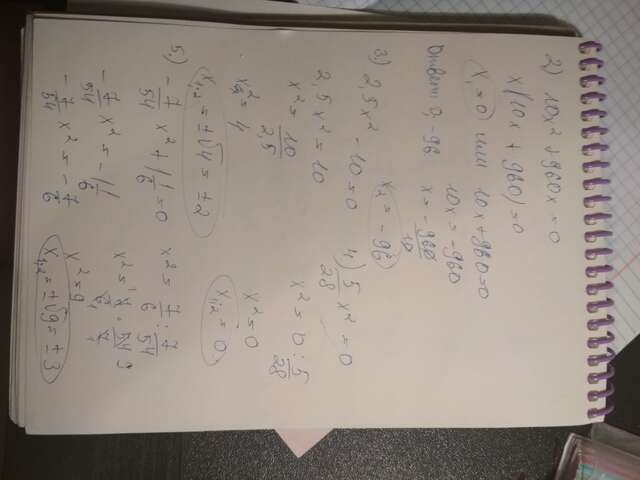 2) 10x² + 960x = 0
x(10x + 960) = 0
x₁ = 0 или 10x + 960 = 0
10x = -960
x = -960/10
Ответ: 0, -96
x₂ = -96
3) 2,5x² - 10 = 0
2,5x² = 10
x² = 10/2,5
x² = 4
x₁,₂ = ±√4 = ±2
4) 5/28 x² = 0
x² = 0 : 5/28
x² = 0
x₁,₂ = 0
5) -7/54 x² + 1 1/6 = 0
-7/54 x² = -1 1/6
-7/54 x² = -7/6
x² = 7/6 : 7/54
x² = 7/6 · 54/7
x² = 9
x₁,₂ = ±√9 = ±3